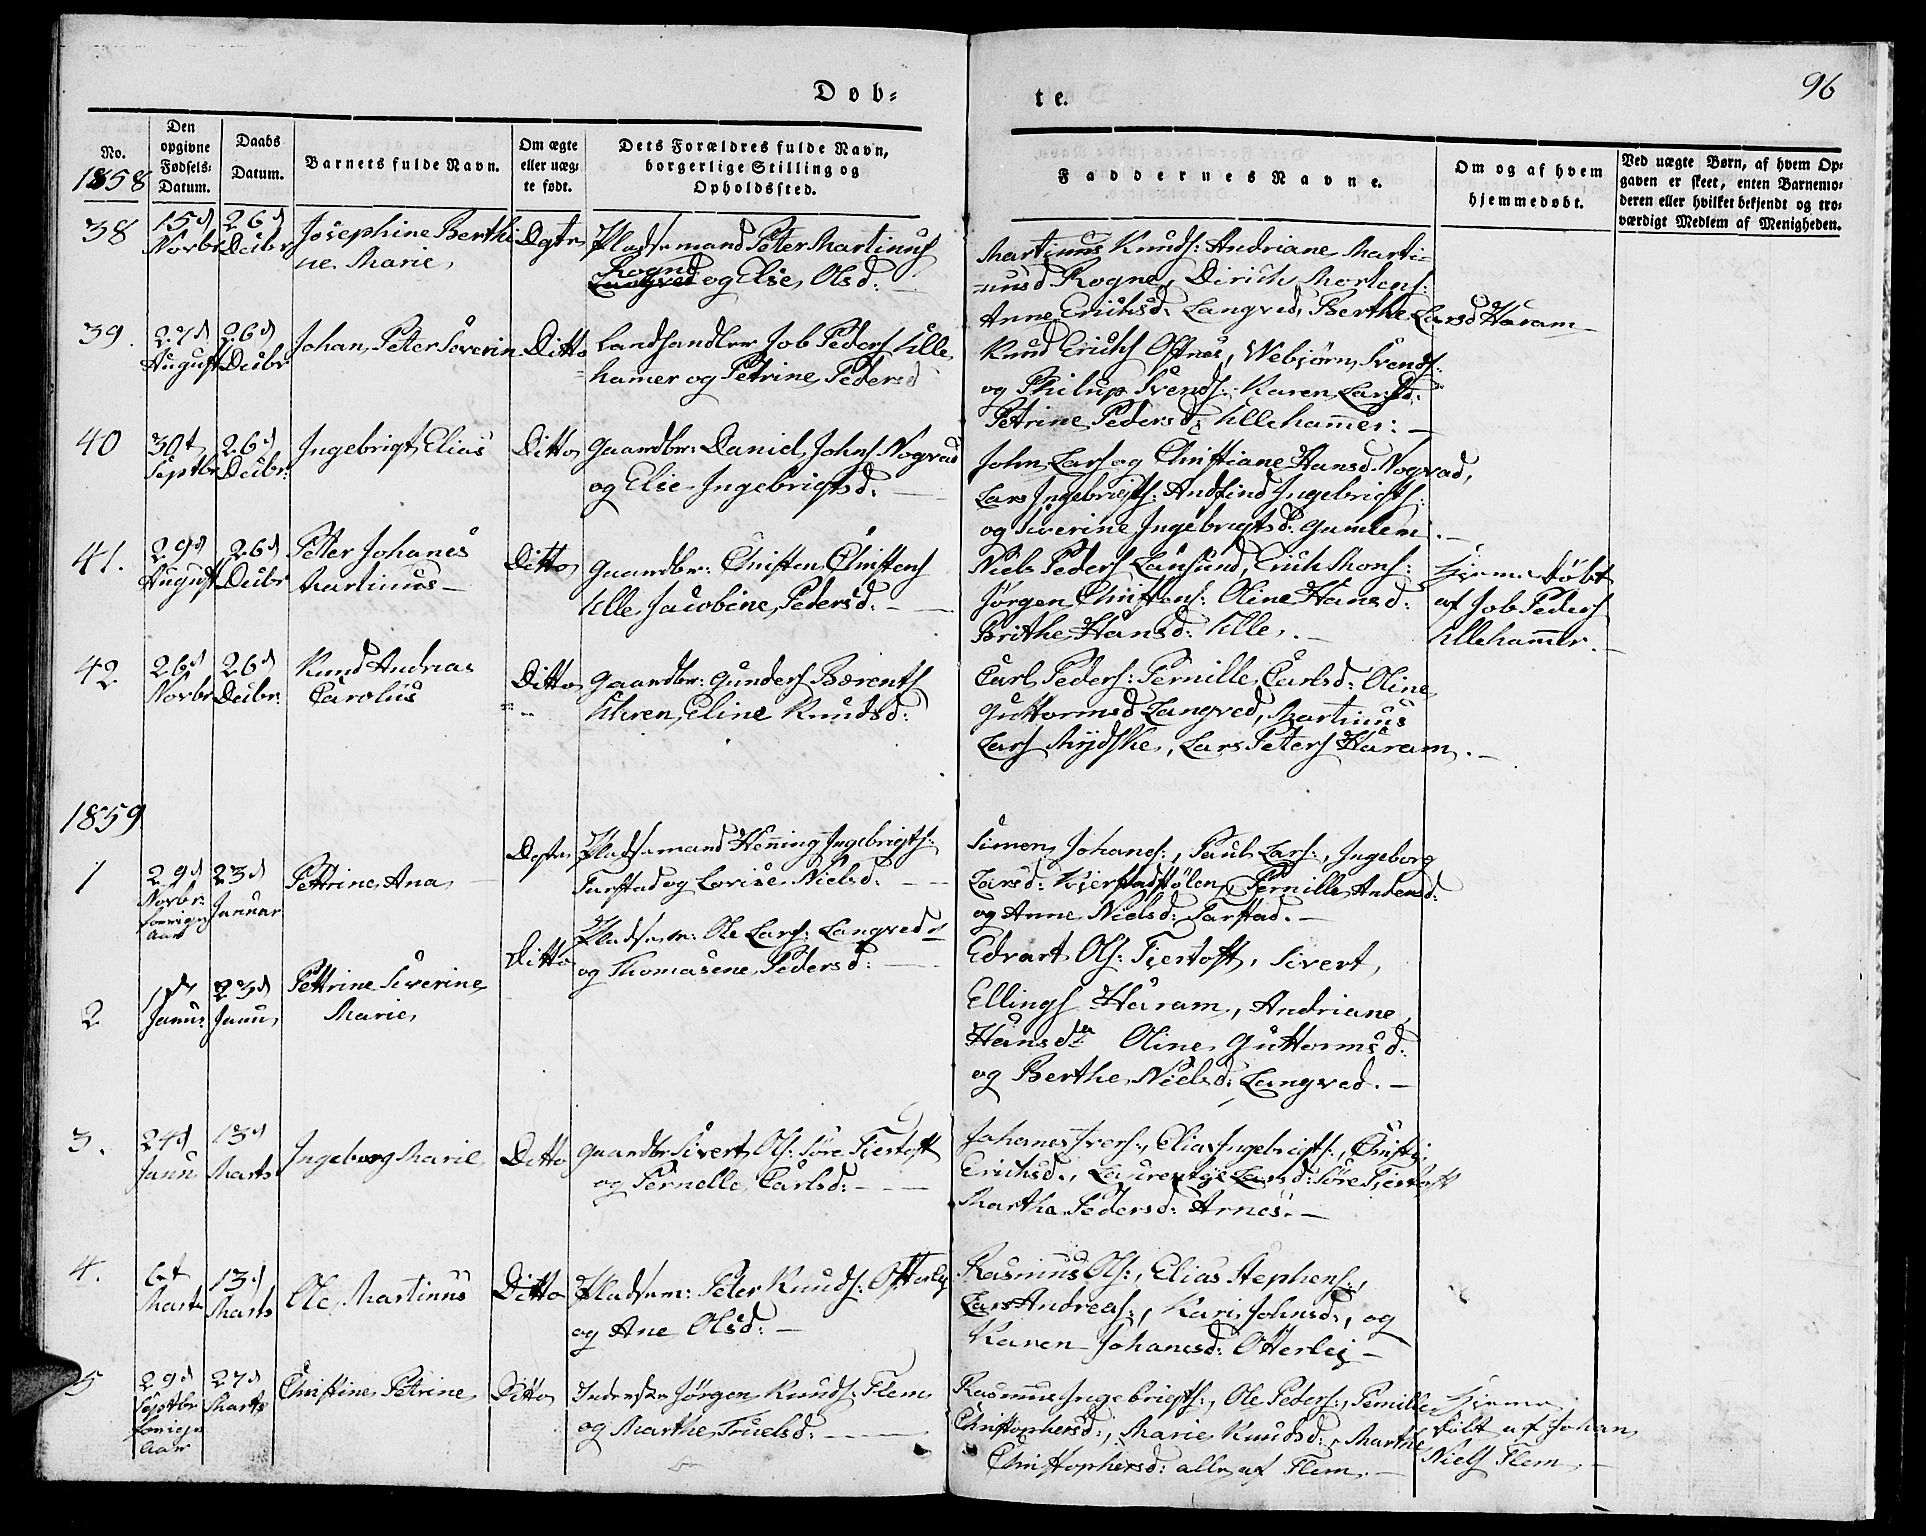 Døb-
te.
96
No.
1858
Den
opgivne
Fødsels-
Datum.
Daabs
Datum.
Barnets fulde Navn.
Om ægte
eller uæg-
te født.
Dets Forældres fulde Navn,
borgerlige Stilling og
Opholdssted.
Faddernes Navne.
Om og af hvem
hjemmedøbt.
Ved uægte Børn, af hvem Op-
gaven er skeet, enten Barnemo-
deren eller hvilket bekjendt og tro-
værdigt Medlem af Menigheden.
38
15d
Novbr
26d
Decbr
Josephine Berthi
ne Marie
Øgte
Pladsemand Peter Martinus
Rogne
Langved og Else Olsd:
Martinus Knuds: Andriane Marti-
nusd Rogne, Dirich Mortens:
Anne Erichsd. Langved, Berthe Larsd Haram
39.
27d
August
26d
Decbr
Johan Peter Severin
Ditto
Landhandler Job Peders Ulle
hamer og Petrine Pedersd
Knud Erichs Ostnes, Webjørn Svends:
og Philup Svends: Karen Larsd:
Petrine Pedersd: Ullehammer: —
40
30t
Septbr
26d
Decbr:
Ingebrigt Elias
Ditto
Gaardbr: Daniel Johns Nogvad
og Else Ingebrigtsd. —
John Lars og Christiane Hansd Nogvad,
Lars Ingebrigts: Andfind Ingebrigts:
og Siverine Ingebrigtsd. Gamlem. —
41.
29d
August
26d
Decbr
Petter Johanes
Martinus —
Ditto
Gaardbr: Christen Christens
Ulle Jacobine Pedersd: —
Niels Peders Lansund, Erich Mons:
Jørgen Christens: Oline Hansd:
Brithe Hansd: Ulle. —
Hjemedøbt
af Job Peders
Ullehammer. —
42
26d
Novbr
26d
Decbr:
Knud Andreas
Carolus
Ditto
Gaardbr: Gunders Bærents
Uhren, Eline Knudsd:
Carl Peders: Pernille Carlsd: Oline
Guttormsd Langved, Martinus
Lars Mydske, Lars Peters Haram. —
1859
1
29d
Novbr:
forrige
Aar
23d
Januar
Pettrine Ana
Øgte
Pladsemand Henning Ingebrigts:
Farstad og Lovise Nielsd: —
Simen Johans:, Paul Lars:, Ingeborg
Larsd: Kjerstadstølen, Pernille Andersd:
og Anne Nielsd: Farstad. —
2
1ste
Janu:
23d
Janu
Pettrine Siverine
Marie
Ditto
Pladsm: Ole Lars: Langved
og Thomasine Pedersd: —
Edvart Ols: Fjertoft, Sivert
Ellings Haram, Andriane
Hansdr Oline Guttormsd:
og Berthe Nielsd: Langved. —
3.
24d
Janu
13d
Marts
Ingeborg Marie
Ditto
Gaardbr Sivert Ols: Søre Fiertoft
og Pernelle Carlsd: — —
Johanes Ivers:, Elias Ingebrigts:, Christi
Erichsd., Laurentze Larsd: Søre Fiertoft
Martha Pedersd: Arnes. —
4.
6t
Marts
13d
Marts
Ole Martinus
Ditto
Pladsm: Peter Knuds: Otterlei
og Ane Olsd: —
Rasmus Ols:, Elias Stephens:,
Lars Andreas:, Kari Johnsd:, og
Karen Johanesd: Otterlei —
5
29d
Septbr
forrige
Aar
27d
Marts
Christine Petrine
Ditto
Inderste Jørgen Knuds Flem
og Marthe Truelsd: —
Rasmus Ingebrigts:, Ole Peders:, Pernille
Christophersd:, Marie Knudsd:, Marthe
Christophersd: alle af Flem. —
Hjeme
døbt af Johan
Niels Flem. —